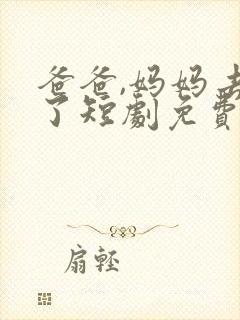 爸爸,妈妈去
了短劇免費
扇轻